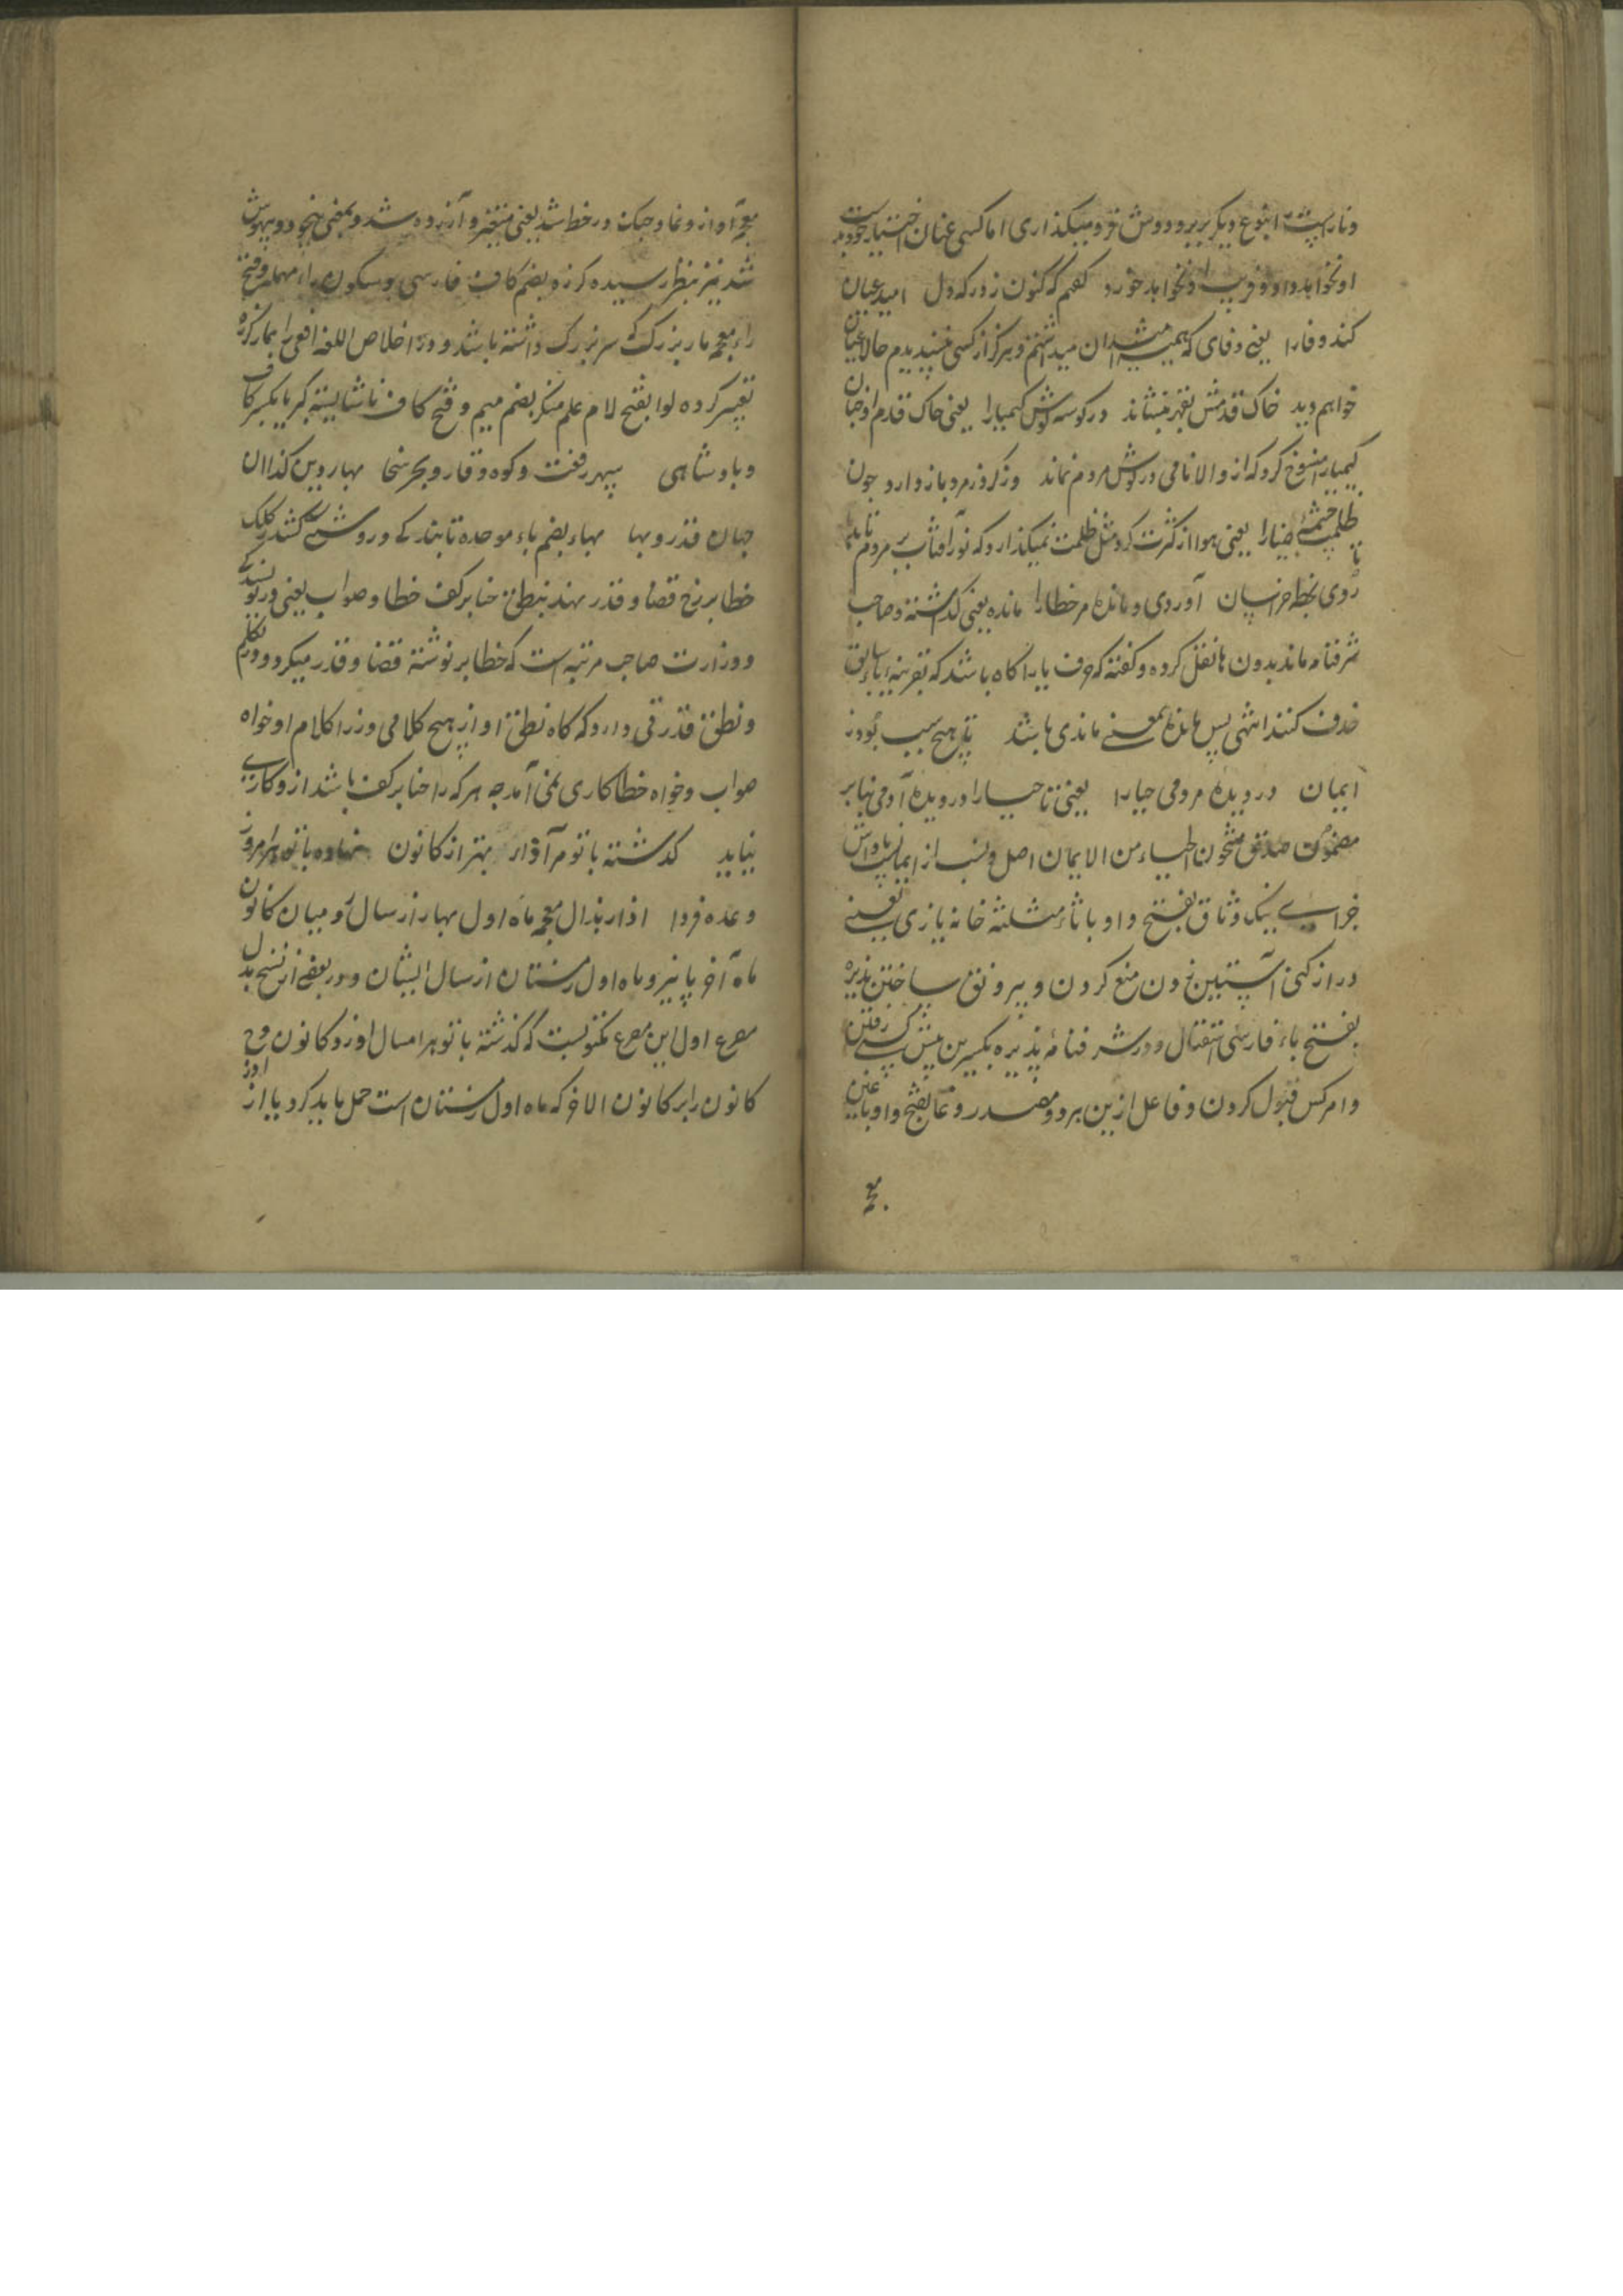 و ناراست را بنوع دیگر بر برد و دوش فرو میگذاری اما کسی عنان اختیار خود بدست
او نخواهد داد و فریب او نخواهد خورد گفتم که کنون زور که دل امید عیان
کند وفا را یعنی وفای که همیشه از آن میداشتم و هرگز از کسی نمیدیدم حالا عیان
خواهم دید خاک قدمش بقهر بنشاند در کوسه کوش کیمیا را یعنی خاک قدم او چنان
کیمیا را منسوخ کرد که از و الا نامی در گوش مردم نماند وز گرد زمرد باز دارد چون
ظلمت چشمه ضیا را یعنی هوا از کثرت گرد مثل ظلمت نمیگذارد که نور آفتاب بر مردم تابد تا
روی بخطه خراسان آوردی و مانده مر خطا را مانده یعنی گذاشته و صاحب
شرفنامه ماند بدون ها نقل کرده و گفته که حرف یا را گاه باشد که بقرینه یاء سابق
حذف کنند انتهی پس مانده بمعنی ماندی باشد بی هیچ سبب بودز
ایمان در دیده مردمی حیا را یعنی تا حیا را در دیده آدمی بنا بر
مضمون صدق مشحون الحیاء من الایمان اصل و نسب از ایمان است پاداش
خرابی بینک وثاق بفتح واو با ثاء مثلثه خانه یازی یعنی
دراز کنی آستین زدن منع کردن و بیرونق ساختن پذیره
بفتح باء فارسی استقبال و در شرفنامه پذیره بکسرین پیش کسی رفتن
و امر کس قبول کردن و فاعل ازین هر دو مصدر وغا بفتح واو با غین
معجمه
معجمه آواز و غا و جنک در خط شد یعنی متغیر و آزرده شد و بمعنی بیخود و بیهوش
شد نیز بنظر رسیده کرزه بضم کاف فارسی و سکون راء مهمله و فتح
زاء معجمه مار بزرک که سر بزرک داشته باشد و در خلاص اللغه افعی را بمار کرزه
تفسیر کرده لوا بفتح لام علم منکر بضم میم و فتح کاف ناشایسته کبریا بکسر کاف
و بادشاهی سپهر رفعت و کوه وقار و بحر سخا بهار دین کذا ان
جهان قدر و بها بهاء بضم باء موحده تابندکی و روشنی کشد کلک
خطا بر رخ قضا و قدر نهد بنطق حنا بر کف خطا و صواب یعنی در نویسندکی
و وزارت صاحب مرتبه است که خطا بر نوشته قضا و قدر میکرد و در تکلم
و نطق قدرتی دارد که گاه نطق او از هیچ کلامی وزرا کلام او خواه
صواب و خواه خطا کاری نمی آمد چه هر که را حنا بر کف باشد از و کاری
نیاید گذشته با تو مر آذار بهتر از کانون نهاده با تو هر امروز
وعده فردا اذار بذال معجمه ماه اول بهار از سال رومیان کانون
ماه آخر پاییز و ماه اول زمستان از سال ایشان و در بعضی از نسخ بدل
مصرع اول این مصرع مکتوبست که گذشته با تو هر امسال او ز و کانون
کانون را بر کانون الاخر که ماه اول زمستان است حمل باید کرد یا از